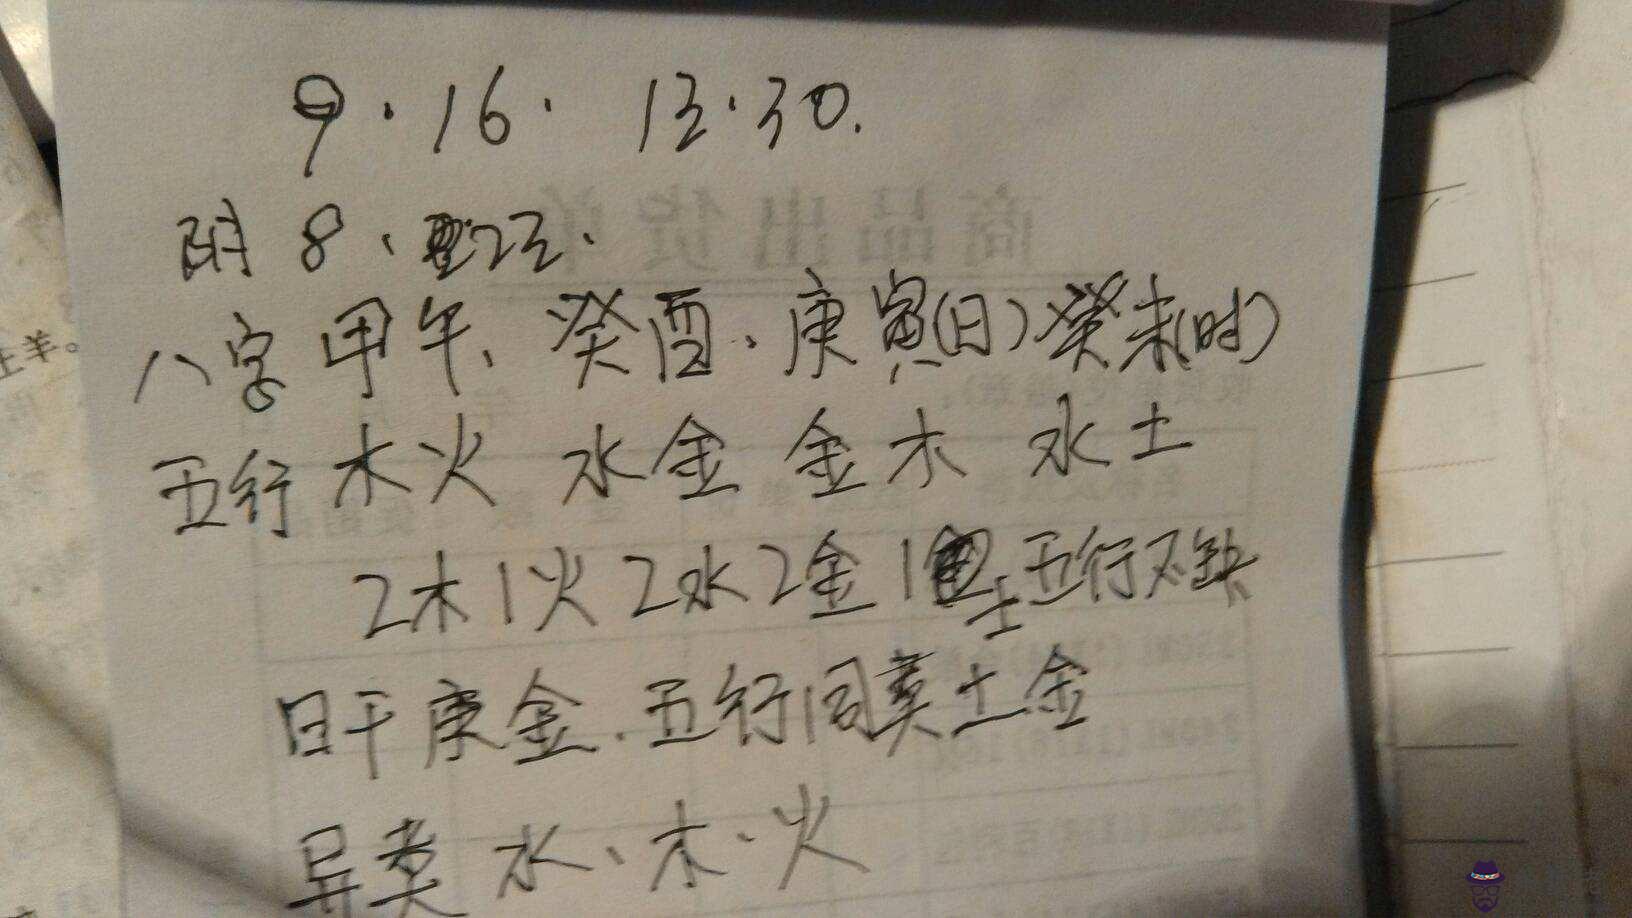 9.16. 13.30.
阴 8、23.
八字 甲午、癸酉、庚寅(日)癸未(时)
五行 木火 水金 金木 水土
2木1火2水2金1土 五行不缺
日干庚金、五行同类土金
异类 水、木、火
商品出货单
生羊。